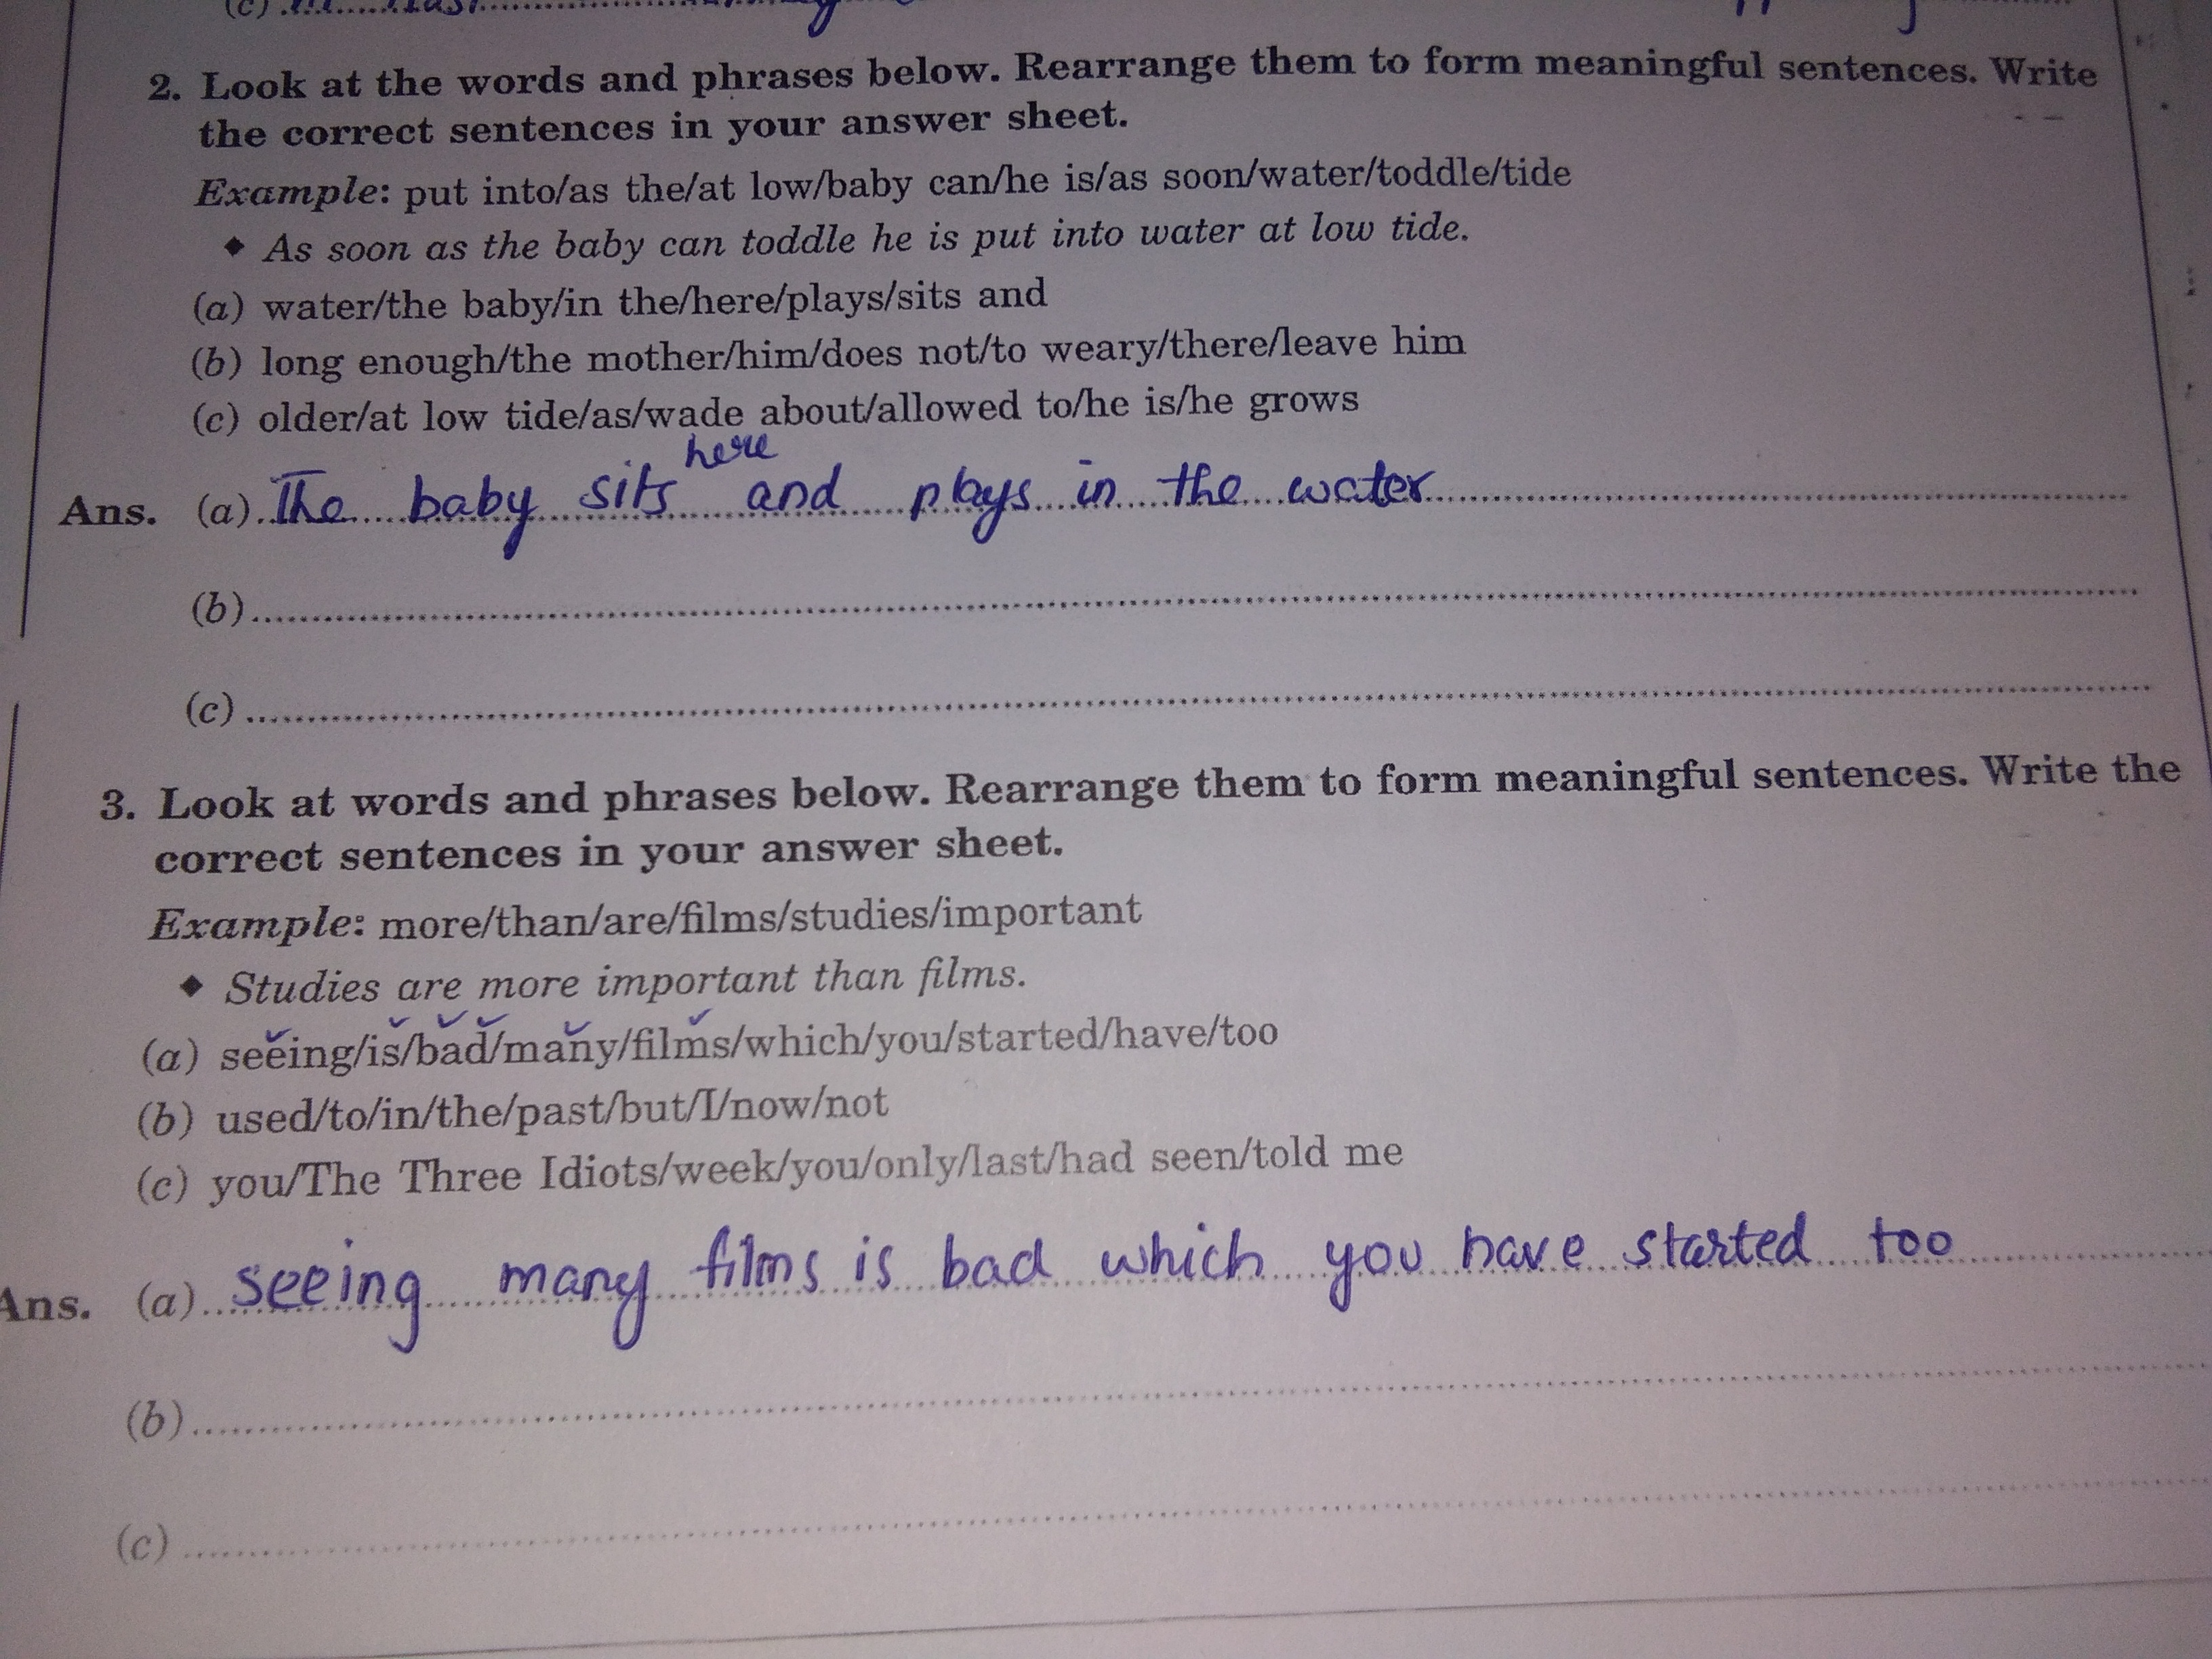 2. Look at the words and phrases below. Rearrange them to form meaningful sentences. Write
the correct sentences in your answer sheet.
Example: put into/as the/at low/baby can/he is/as soon/water/toddle/tide
◆ As soon as the baby can toddle he is put into water at low tide.
(a) water/the baby/in the/here/plays/sits and
(b) long enough/the mother/him/does not/to weary/there/leave him
(c) older/at low tide/as/wade about/allowed to/he is/he grows
here
Ans. (a) The baby sits and plays in the water
(b)
(c)
3. Look at words and phrases below. Rearrange them to form meaningful sentences. Write the
correct sentences in your answer sheet.
Example: more/than/are/films/studies/important
◆ Studies are more important than films.
(a) seeing/is/bad/many/films/which/you/started/have/too
(b) used/to/in/the/past/but/I/now/not
(c) you/The Three Idiots/week/you/only/last/had seen/told me
Ans. (a) seeing many films is bad which you have started too
(b)
(c)